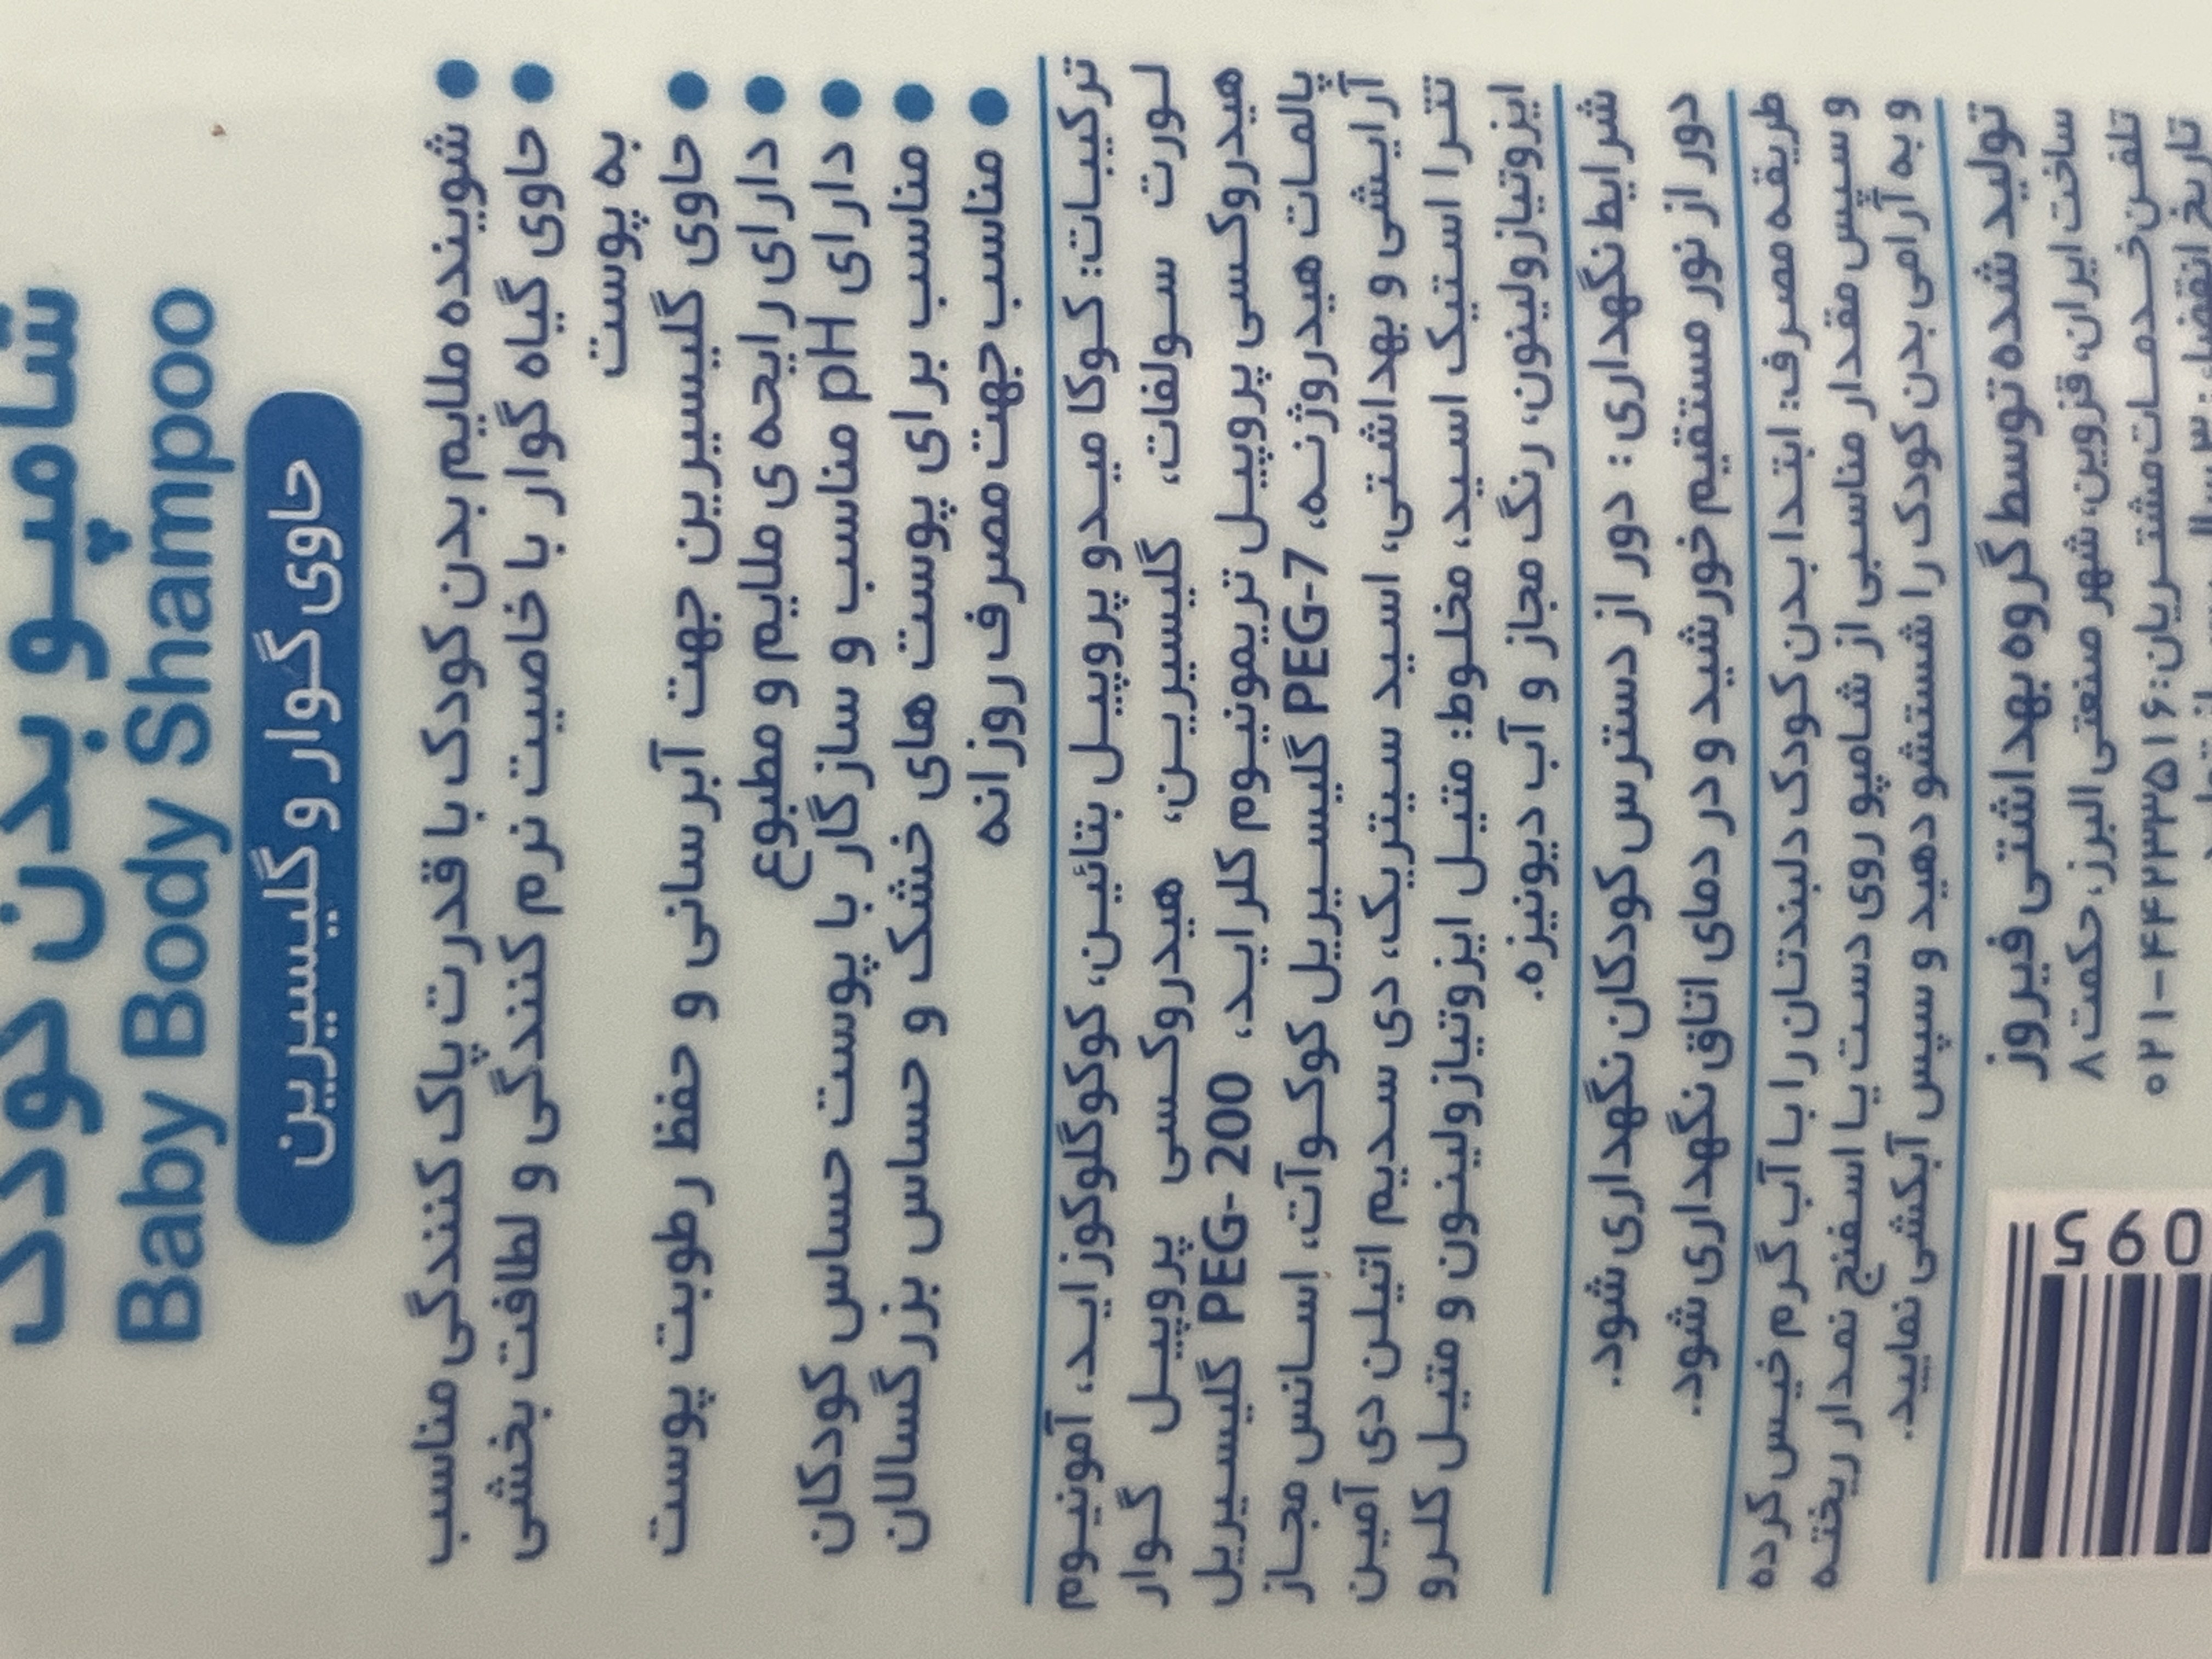 شامپو بدن کودک
Baby Body Shampoo
حاوی گوار و گلیسیرین
● شوینده ملایم بدن کودک با قدرت پاک کنندگی مناسب
● حاوی گیاه گوار با خاصیت نرم کنندگی و لطافت بخشی
به پوست
● حاوی گلیسیرین جهت آبرسانی و حفظ رطوبت پوست
● دارای رایحه ی ملایم و مطبوع
● دارای pH مناسب و سازگار با پوست حساس کودکان
● مناسب برای پوست های خشک و حساس بزرگسالان
● مناسب جهت مصرف روزانه
ترکیبات: کوکا میدو پروپیل بتائین، کوکوگلوکوزاید، آمونیوم
لورت سولفات، گلیسیرین، هیدروکسی پروپیل گوار
هیدروکسی پروپیل تریمونیوم کلراید، PEG- 200 گلیسیریل
پالمات هیدروژنه، PEG-7 گلیسیریل کوکوآت، اسانس مجاز
آرایشی و بهداشتی، اسید سیتریک، دی سدیم اتیلن دی آمین
تترا استیک اسید، مخلوط: متیل ایزوتیازولینون و متیل کلرو
ایزوتیازولینون، رنگ مجاز و آب دیونیزه.
شرایط نگهداری: دور از دسترس کودکان نگهداری شود.
دور از نور مستقیم خورشید و در دمای اتاق نگهداری شود.
طریقه مصرف: ابتدا بدن کودک دلبندتان را با آب گرم خیس کرده
و سپس مقدار مناسبی از شامپو روی دست یا اسفنج نمدار ریخته
و به آرامی بدن کودک را شستشو دهید و سپس آبکشی نمایید.
تولید شده توسط گروه بهداشتی فیروز
ساخت ایران، قزوین، شهر صنعتی البرز، حکمت ۷
تلفن خدمات مشتریان:
تاریخ انقضاء: ۳
0953